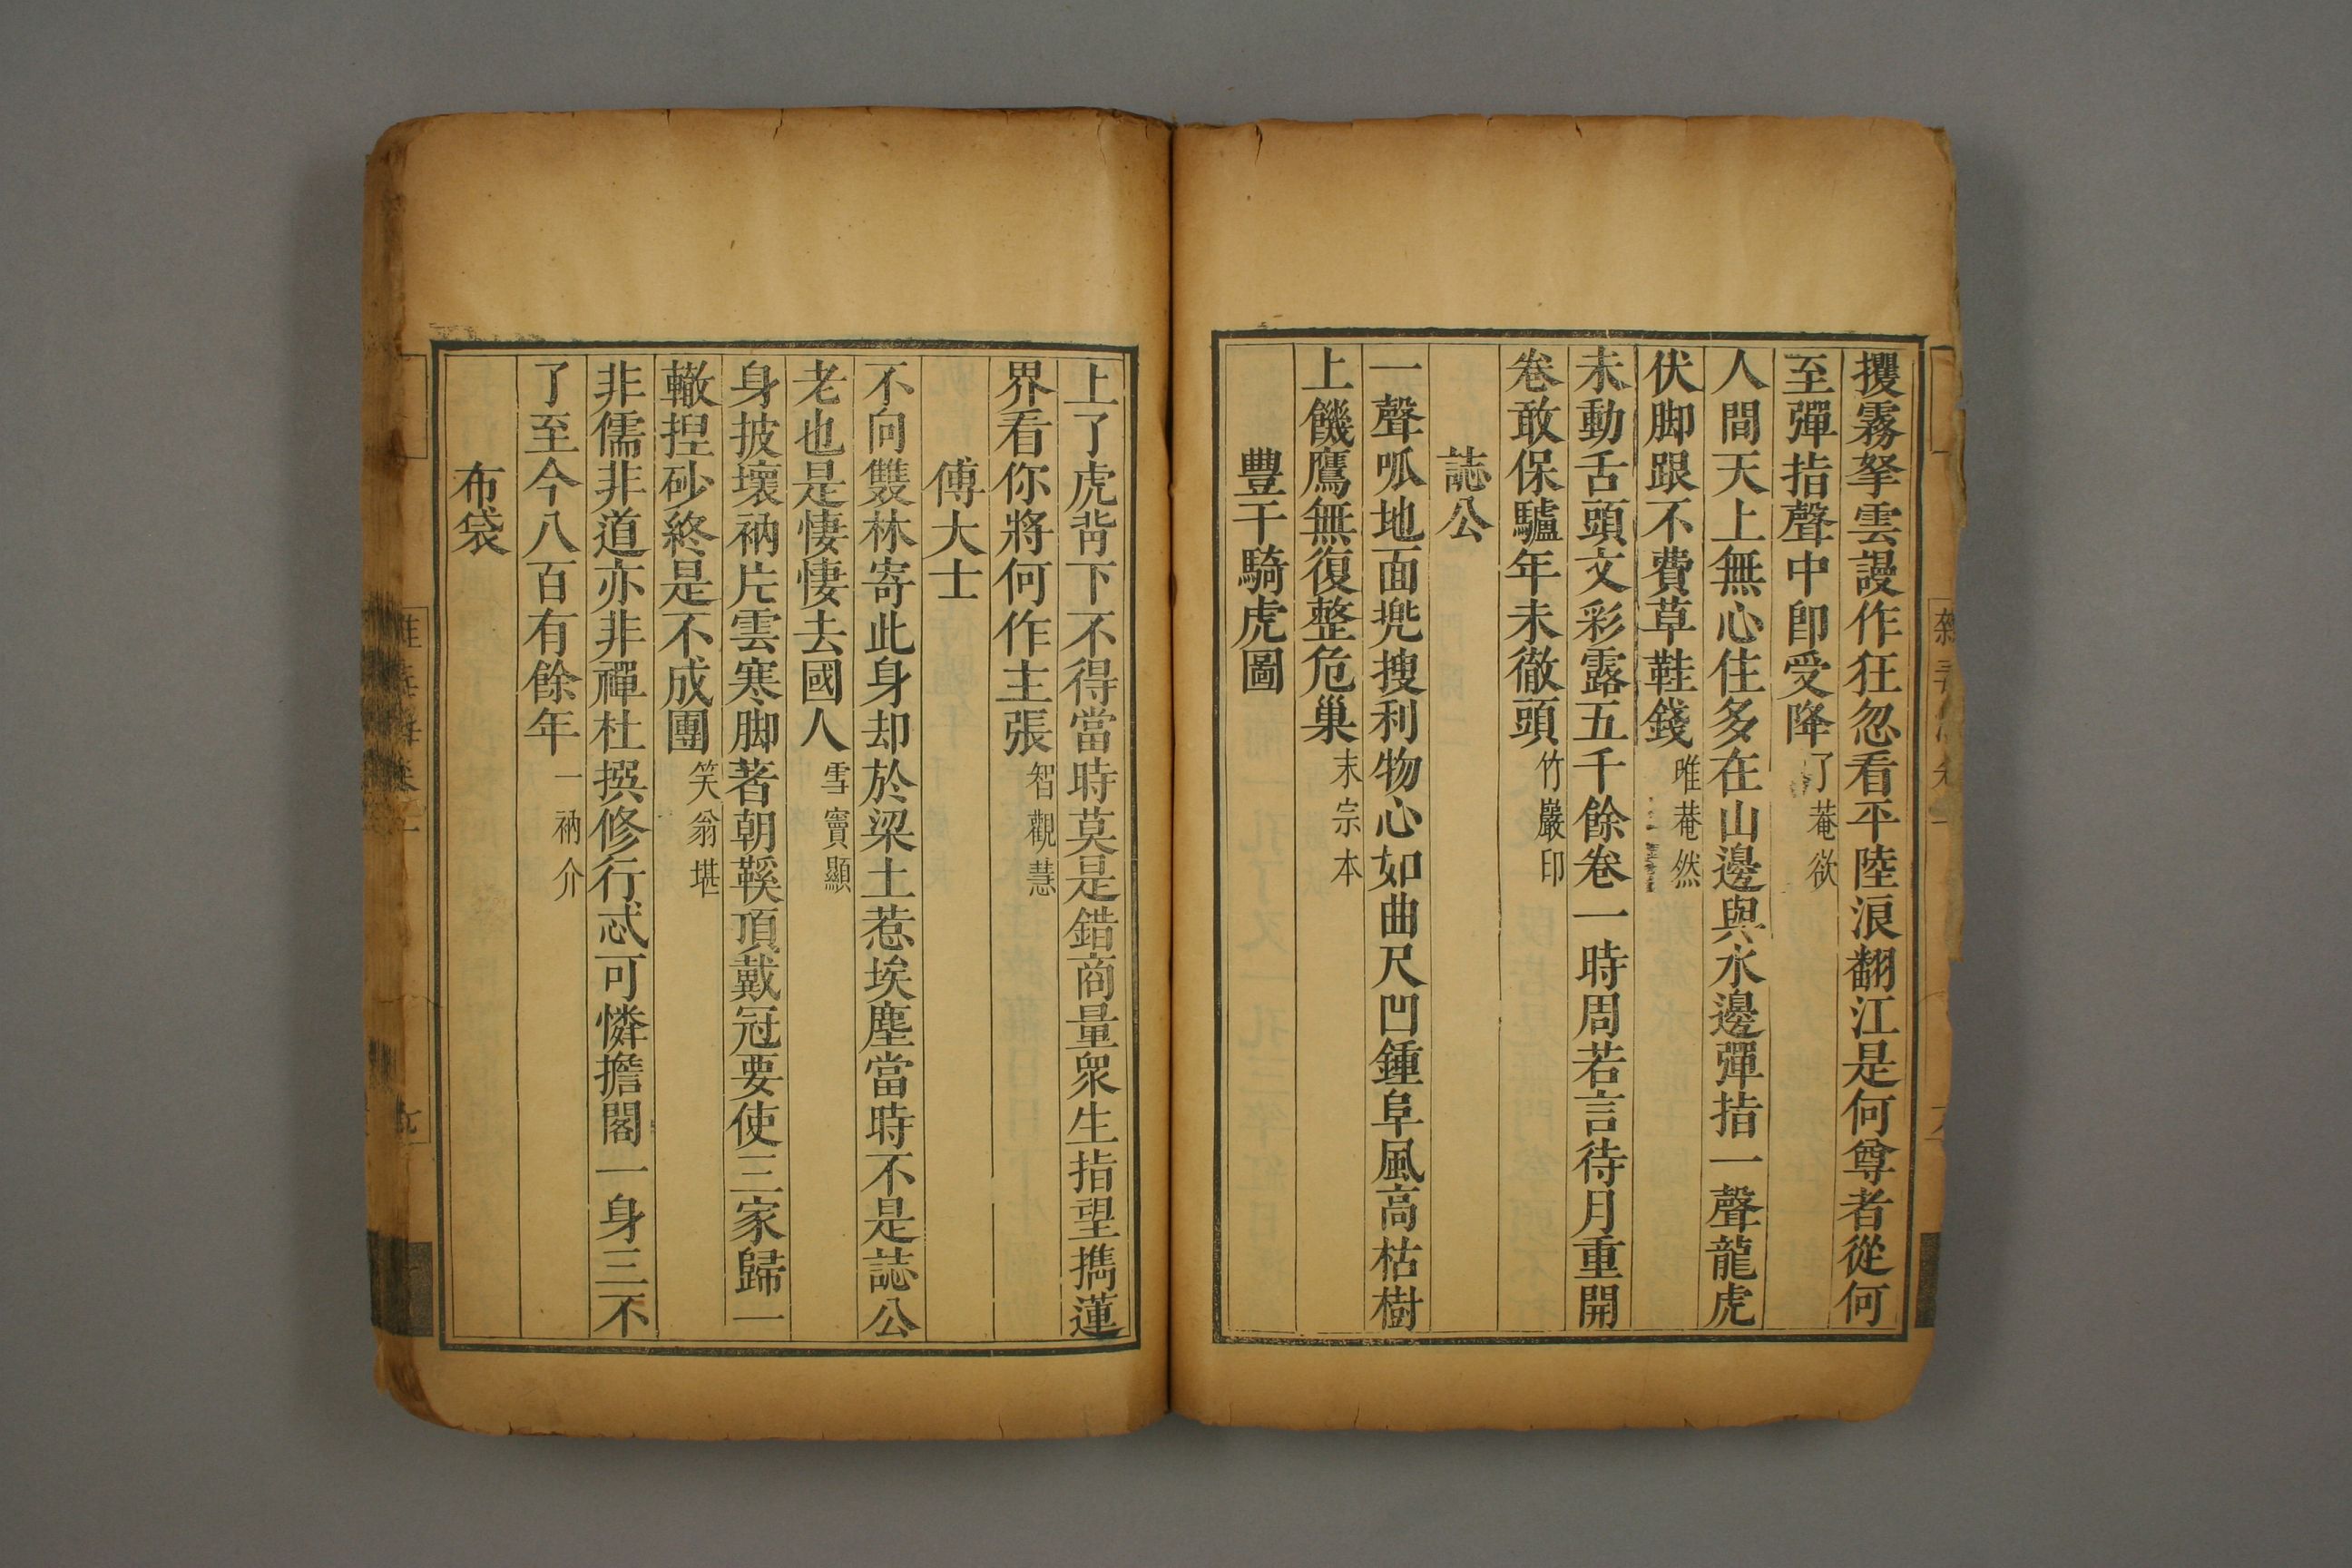 攫霧拏雲謾作狂忽看平陸浪翻江是何尊者從何
至彈指聲中即受降 了菴欲
人間天上無心住多在山邊與水邊彈指一聲龍虎
伏脚跟不費草鞋錢 唯菴然
未動舌頭文彩露五千餘卷一時周若言待月重開
卷敢保驢年未徹頭 竹巖印
誌公
一聲呱地面兠搜利物心如曲尺凹鍾阜風高枯樹
上饑鷹無復整危巢 末宗本
豐干騎虎圖
上了虎背下不得當時莫是錯商量衆生指望擕蓮
界看你將何作主張 智觀慧
傅大士
不向雙林寄此身却於梁土惹埃塵當時不是誌公
老也是悽悽去國人 雪竇顯
身披壞衲片雲寒脚著朝鞵頂戴冠要使三家歸一
轍捏砂終是不成團 笑翁堪
非儒非道亦非禪杜撰修行忒可憐擔閣一身三不
了至今八百有餘年 一衲介
布袋